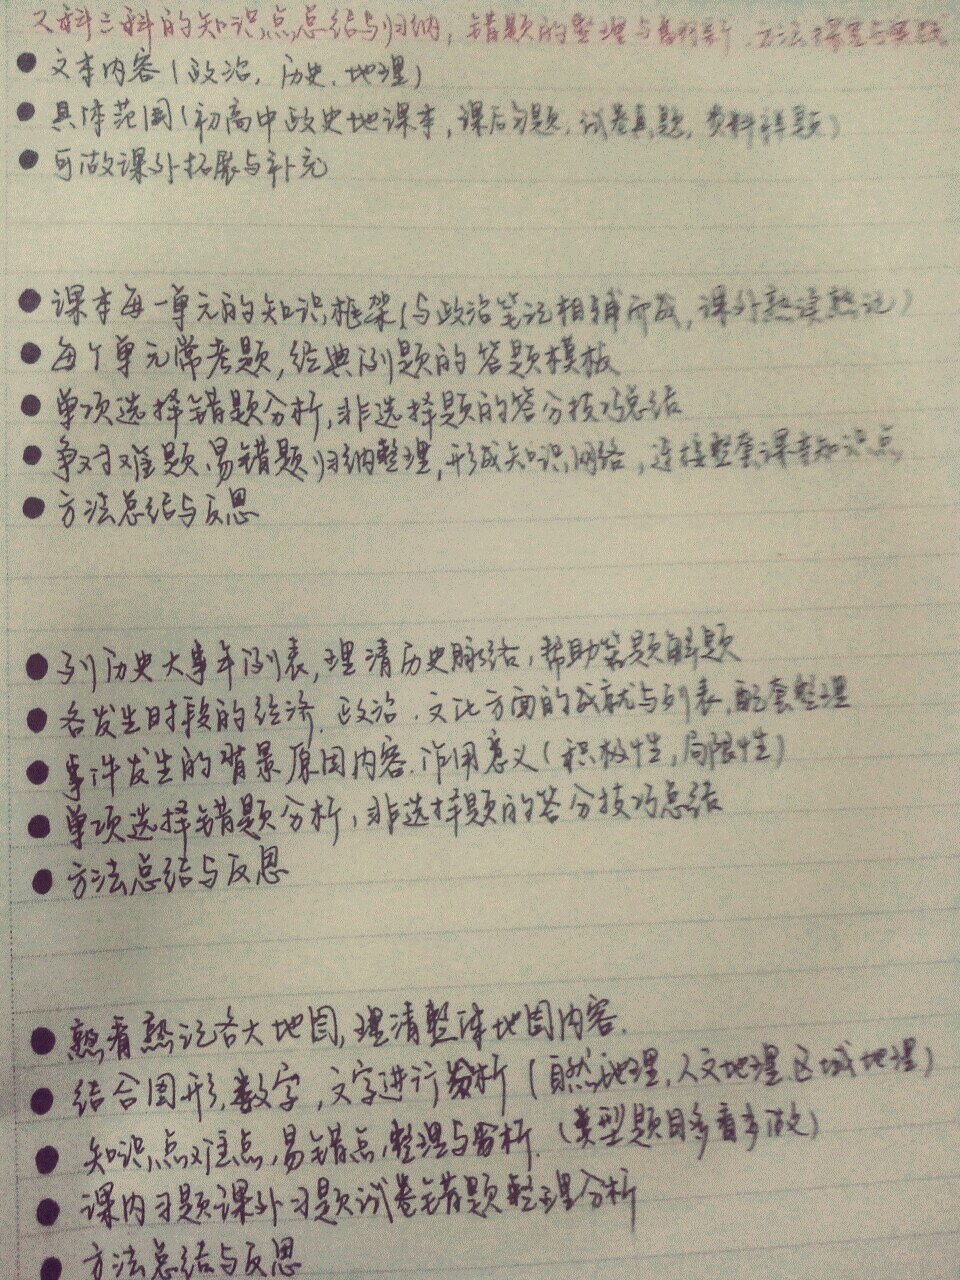 文科三科的知识点总结与归纳，错题的整理与剖析，方法
● 文本内容（政治，历史，地理）
● 具体范围（初高中政史地课本，课后习题，试卷真题，资料详题）
● 可做课外拓展与补充
● 课本每一单元的知识框架（与政治笔记相辅而成，课外熟读熟记）
● 每个单元常考题，经典例题的答题模板
● 单项选择错题分析，非选择题的答分技巧总结
● 争对难题，易错题归纳整理，形成知识网络，连接整套课本知识点
● 方法总结与反思
● 列历史大事年列表，理清历史脉络，帮助答题解题
● 各发生时段的经济，政治，文化方面的成就与列表，配套整理
● 事件发生的背景原因内容，作用意义（积极性，局限性）
● 单项选择错题分析，非选择题的答分技巧总结
● 方法总结与反思
● 熟看熟记各大地图，理清整体地图内容.
● 结合图形，数字，文字进行分析（自然地理，人文地理，区域地理）
● 知识点难点，易错点，整理与分析.（类型题目多看多做）
● 课内习题课外习题试卷错题整理分析
● 方法总结与反思